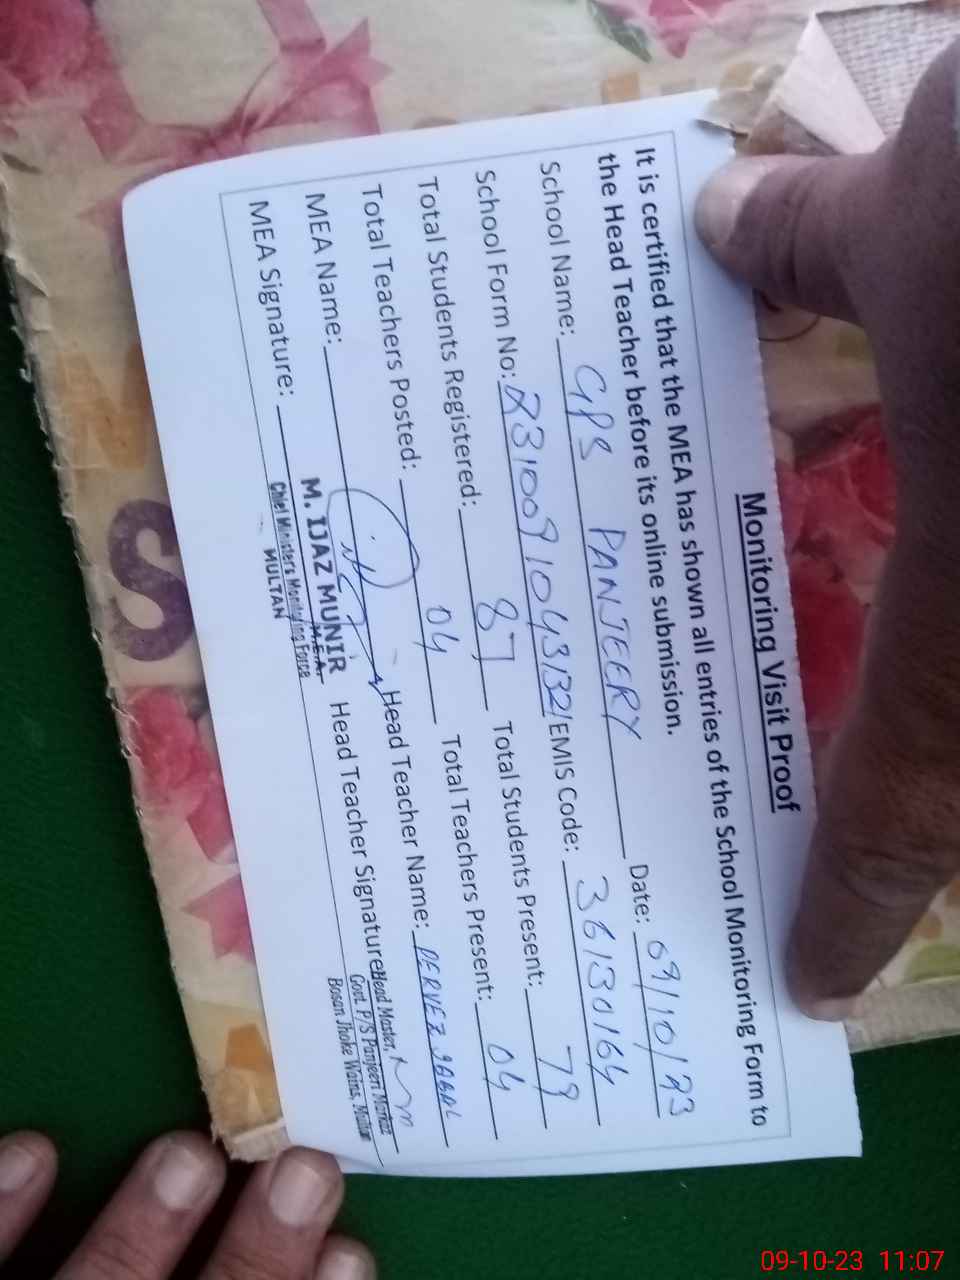 Monitoring Visit Proof
It is certified that the MEA has shown all entries of the School Monitoring Form to
the Head Teacher before its online submission.
School Name: GPS PANJEERY Date: 09/10/23
School Form No: EMIS Code: 36130164
Total Students Registered: 87 Total Students Present: 79
Total Teachers Posted: 04 Total Teachers Present: 04
MEA Name: Head Teacher Name: PERVEZ IQBAL
MEA Signature: Head Teacher Signature:
M. IJAZ MUNIR
M.E.A.
Chief Ministers Monitoring Force
MULTAN
Head Master,
Govt. P/S Panjeeri Markaz
Bosan Jhoke Wains, Multan
S
09-10-23 11:07